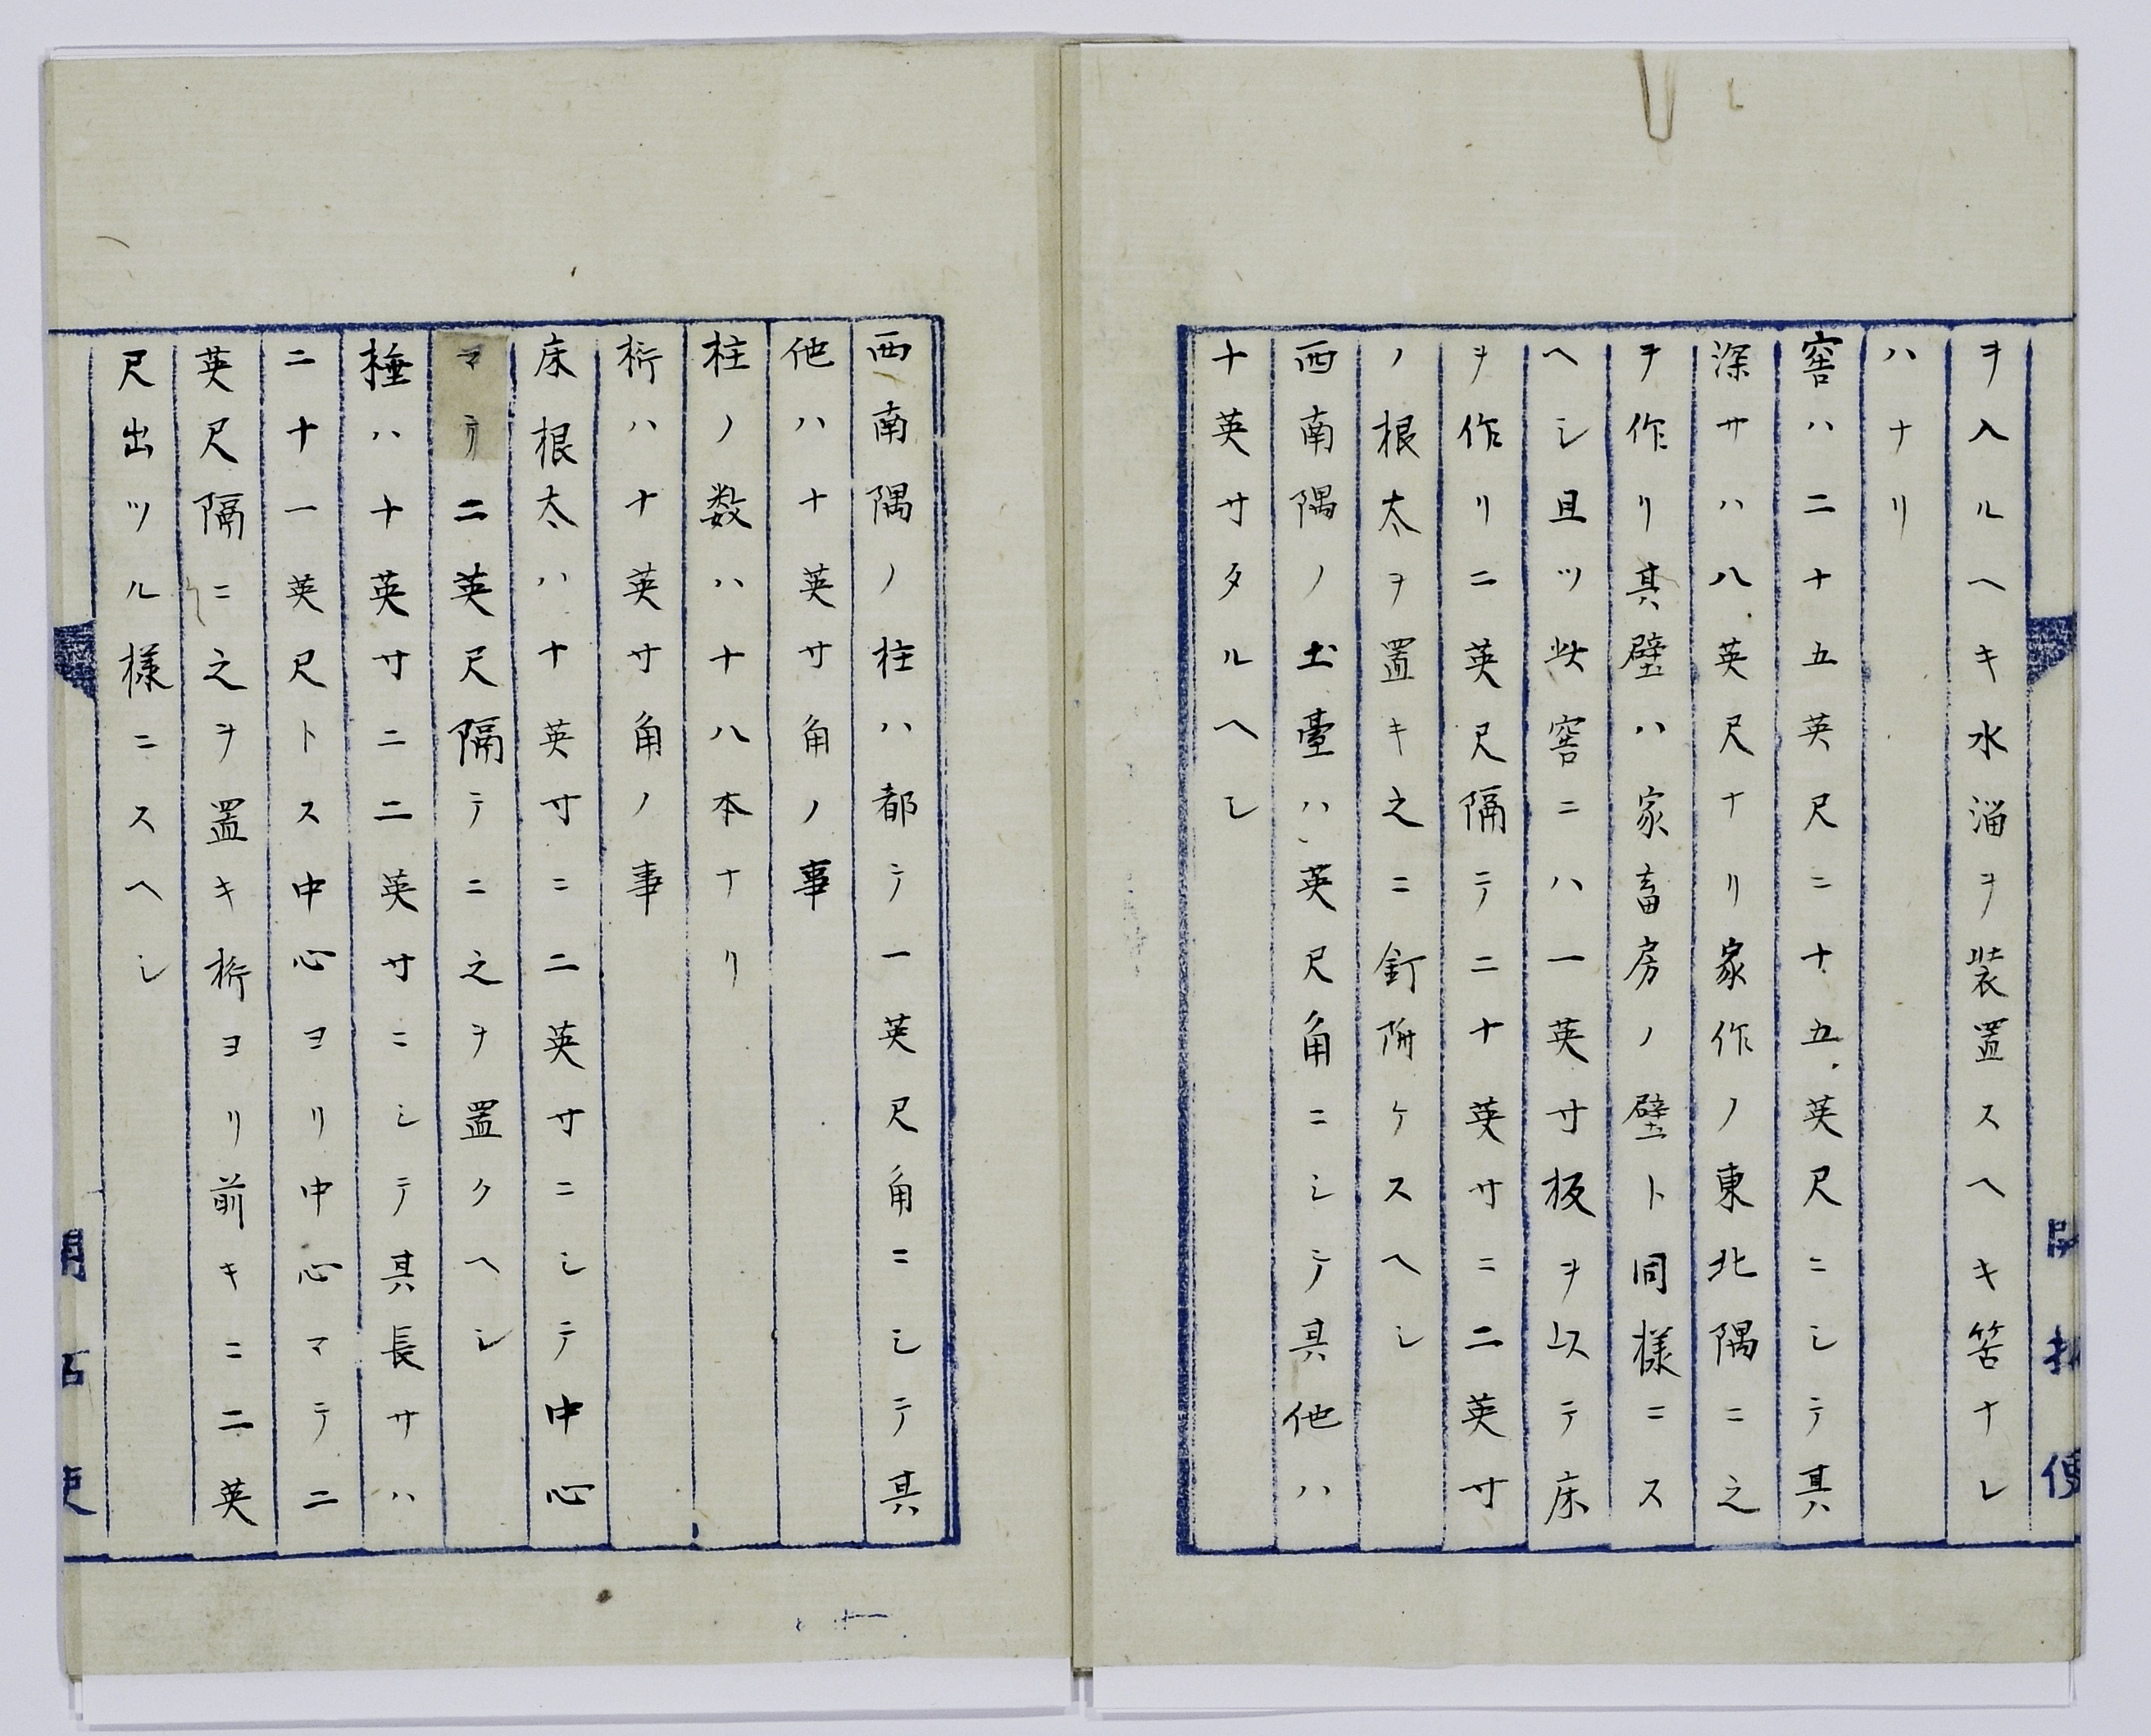 ヲ入ルヘキ水溜ヲ装置スヘキ筈ナレ
ハナリ
窖ハ二十五英尺ニ十五英尺ニシテ其
深サハ八英尺ナリ家作ノ東北隅ニ之
ヲ作リ其壁ハ家畜房ノ壁ト同様ニス
ヘシ且ツ此窖ニハ一英寸板ヲ以テ床
ヲ作リ二英尺隔テ二十英寸ニ二英寸
ノ根太ヲ置キ之ニ釘附ケスヘシ
西南隅ノ土臺ハ英尺角ニシテ其他ハ
十英寸タルヘシ
開拓使
西南隅ノ柱ハ都テ一英尺角ニシテ其
他ハ十英寸角ノ事
柱ノ数ハ十八本ナリ
桁ハ十英寸角ノ事
床根太ハ十英寸ニ二英寸ニシテ中心
二英尺隔テニ之ヲ置クヘシ
棰ハ十英寸ニ二英寸ニシテ其長サハ
二十一英尺トス中心ヨリ中心マテ二
英尺隔ニ之ヲ置キ桁ヨリ前キニ二英
尺出ツル様ニスヘシ
開拓使